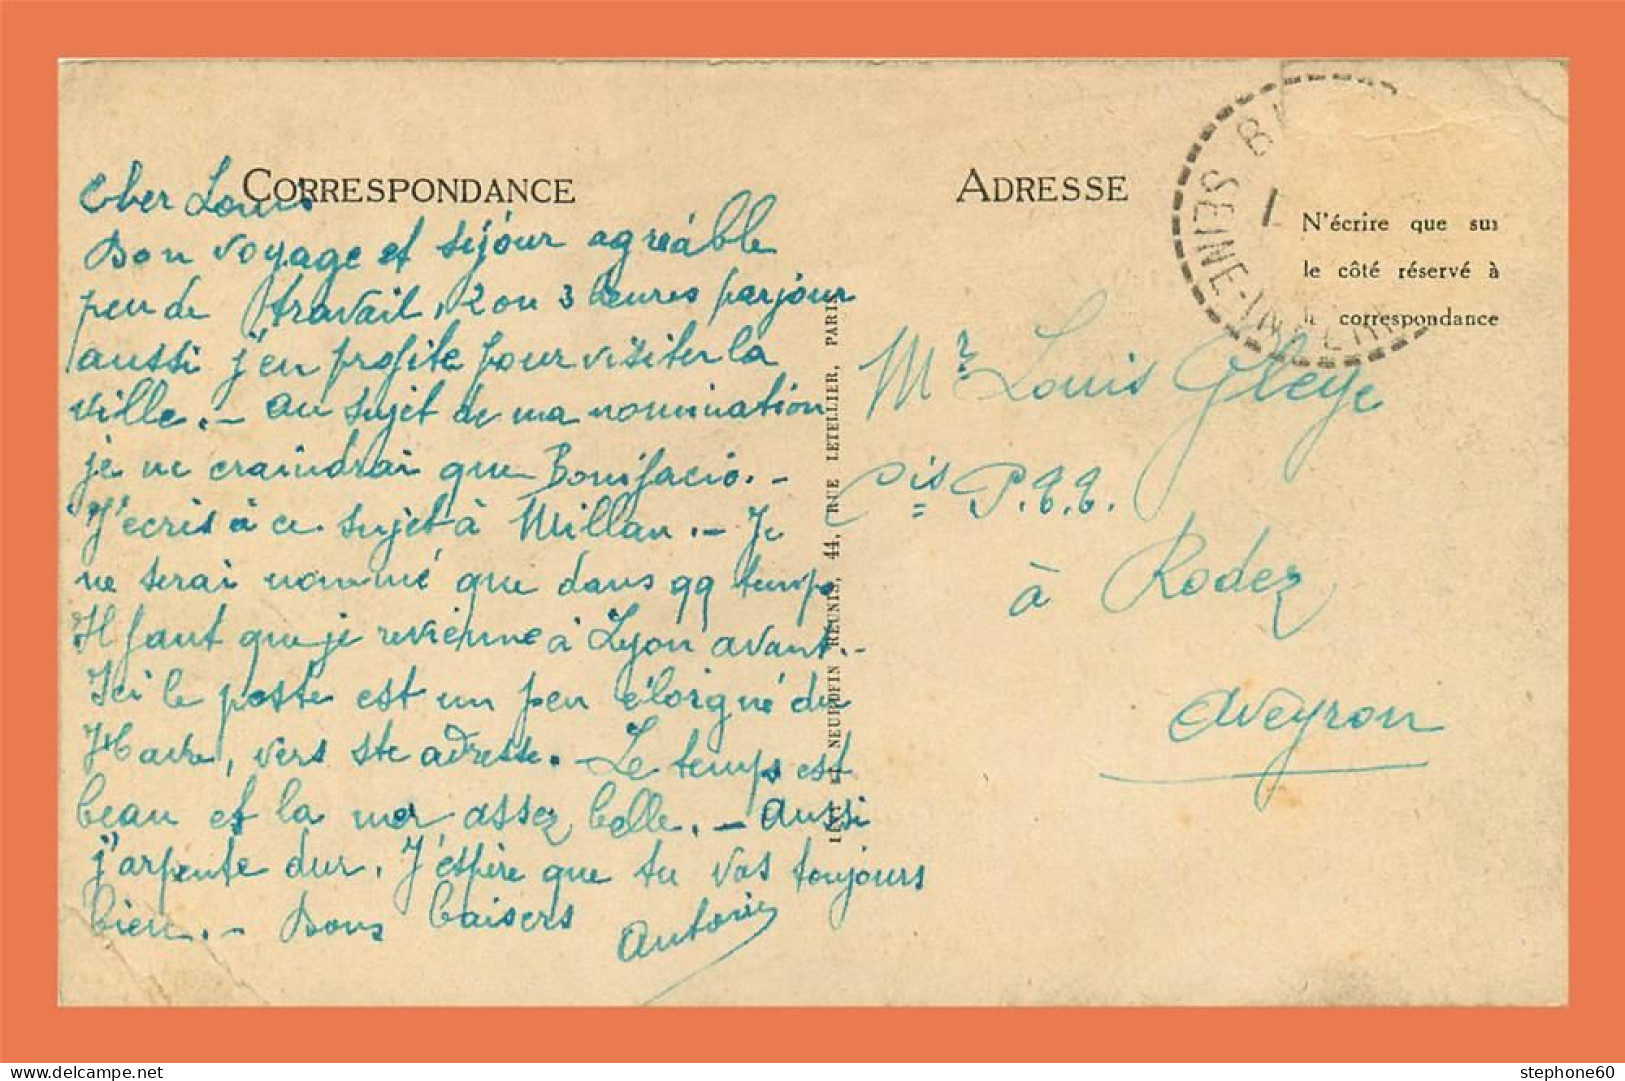 CORRESPONDANCE
Cher Louis
Bon voyage et séjour agréable
peu de travail, 2 ou 3 heures par jour
aussi j'en profite pour visiter la
ville. - au sujet de ma nomination
je ne craindrai que Bonifacio. -
J'ecris à ce sujet à Millau. - Je
ne serai nommé que dans qq temps
Il faut que je revienne à Lyon avant. -
Ici le poste est un peu éloigné du
Havre, vers ste adresse. - Le temps est
beau et la mer assez belle. - Aussi
j'arpente dur. J'espère que tu vas toujours
bien. - Bons baisers
Antonin
NEURDEIN RÉUNIS, 44, RUE LETELLIER, PARIS
ADRESSE
SEINE-INFER
N'écrire que sur
le côté réservé à
la correspondance
Mr Louis Gleye
is P.
à Rodez
Aveyron
stephone60